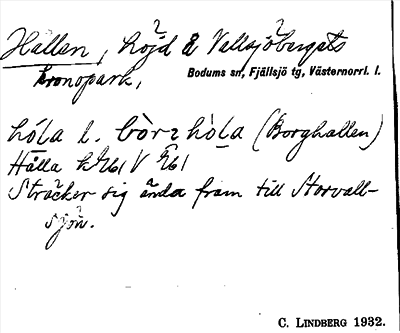 Hallen, höjd å Vallsjöbergets
kronopark,
Bodums sn, Fjällsjö tg, Västernorrl. l.
hóla l. bòrzhòla (Borghallen)
Hälla
Sträcker sig ända fram till Storvall-
sjön.
C. LINDBERG 1932.